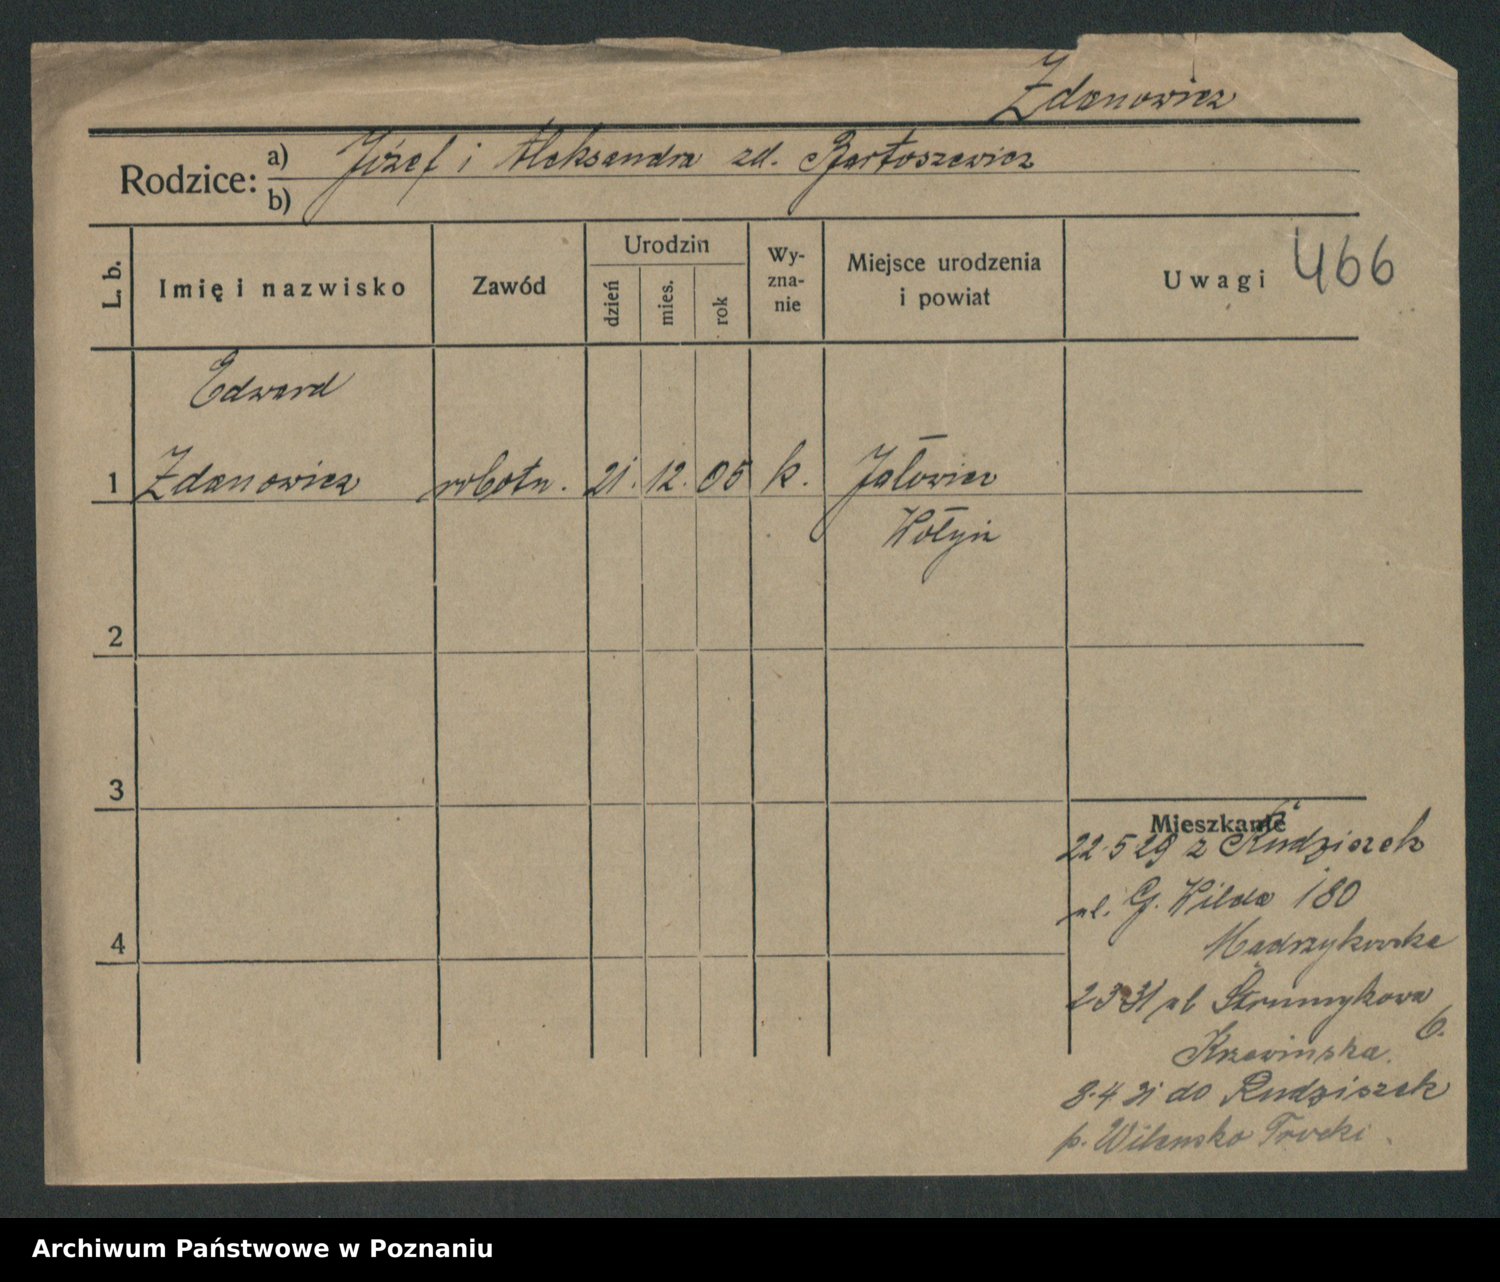 Zdanowicz
Rodzice: a) Józef i Aleksandra zd. Bartoszewicz
b)
L. b. Imię i nazwisko Zawód Urodzin dzień mies. rok Wyzna-nie Miejsce urodzenia i powiat Uwagi 466
Edward
1 Zdanowicz robotn. 21. 12. 05 k. Jałowicz
Wołyń
2
3
Mieszkanie
22.5 29 z Rudziszek
ul. G. Wilda 180
4
Mądrzykowska
2 3 31 ul Strumykowa
6.
Krzewińska.
8.4 31 do Rudziszek
p. Wilensko Trocki.
Archiwum Państwowe w Poznaniu